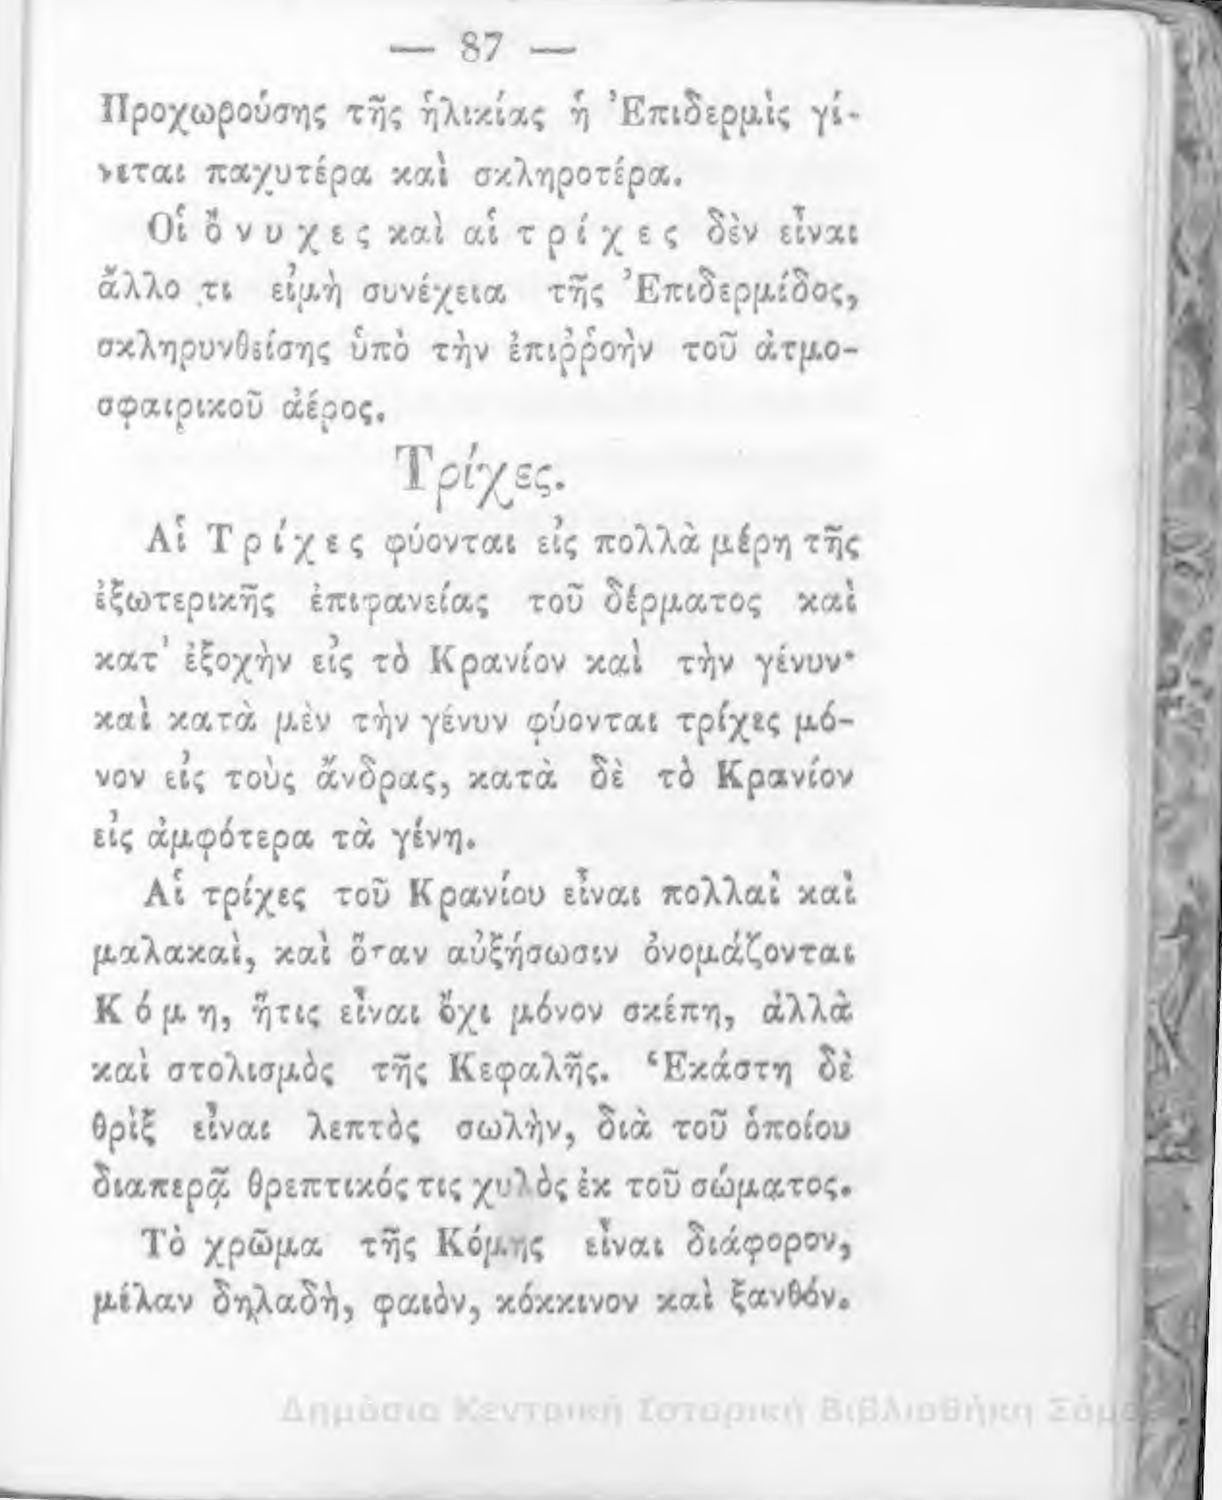 — 87 —
Προχωρούσης τῆς ἡλικίας ἡ Ἐπιδερμὶς γί-
νεται παχυτέρα καὶ σκληροτέρα.
Οἱ ὄνυχες καὶ αἱ τρίχες δὲν εἶναι
ἄλλο τι εἰμὴ συνέχεια τῆς Ἐπιδερμίδος,
σκληρυνθείσης ὑπὸ τὴν ἐπιῤῥοὴν τοῦ ἀτμο-
σφαιρικοῦ ἀέρος.
Τρίχες.
Αἱ Τρίχες φύονται εἰς πολλὰ μέρη τῆς
ἐξωτερικῆς ἐπιφανείας τοῦ δέρματος καὶ
κατ' ἐξοχὴν εἰς τὸ Κρανίον καὶ τὴν γένυν·
καὶ κατὰ μὲν τὴν γένυν φύονται τρίχες μό-
νον εἰς τοὺς ἄνδρας, κατὰ δὲ τὸ Κρανίον
εἰς ἀμφότερα τὰ γένη.
Αἱ τρίχες τοῦ Κρανίου εἶναι πολλαὶ καὶ
μαλακαὶ, καὶ ὅταν αὐξήσωσιν ὀνομάζονται
Κόμη, ἥτις εἶναι ὄχι μόνον σκέπη, ἀλλὰ
καὶ στολισμὸς τῆς Κεφαλῆς. Ἑκάστη δὲ
θρὶξ εἶναι λεπτὸς σωλὴν, διὰ τοῦ ὁποίου
διαπερᾷ θρεπτικός τις χυλὸς ἐκ τοῦ σώματος.
Τὸ χρῶμα τῆς Κόμης εἶναι διάφορον,
μέλαν δηλαδὴ, φαιὸν, κόκκινον καὶ ξανθόν.
Δημόσια Κεντρική Ιστορική Βιβλιοθήκη